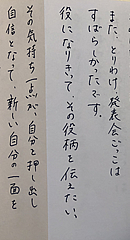 また、とりわけ、発表会ごっこは
すばらしかったです。
役になりきって、その役柄を伝えたい、
その気持ち一点が、自分を押し出し
自信となって、新しい自分の一面を